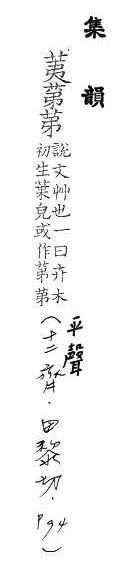 集韻
荑蕛苐
說文艸也一曰卉木
初生葉皃或作蕛苐
平聲
(十二齊．田黎切．P94)